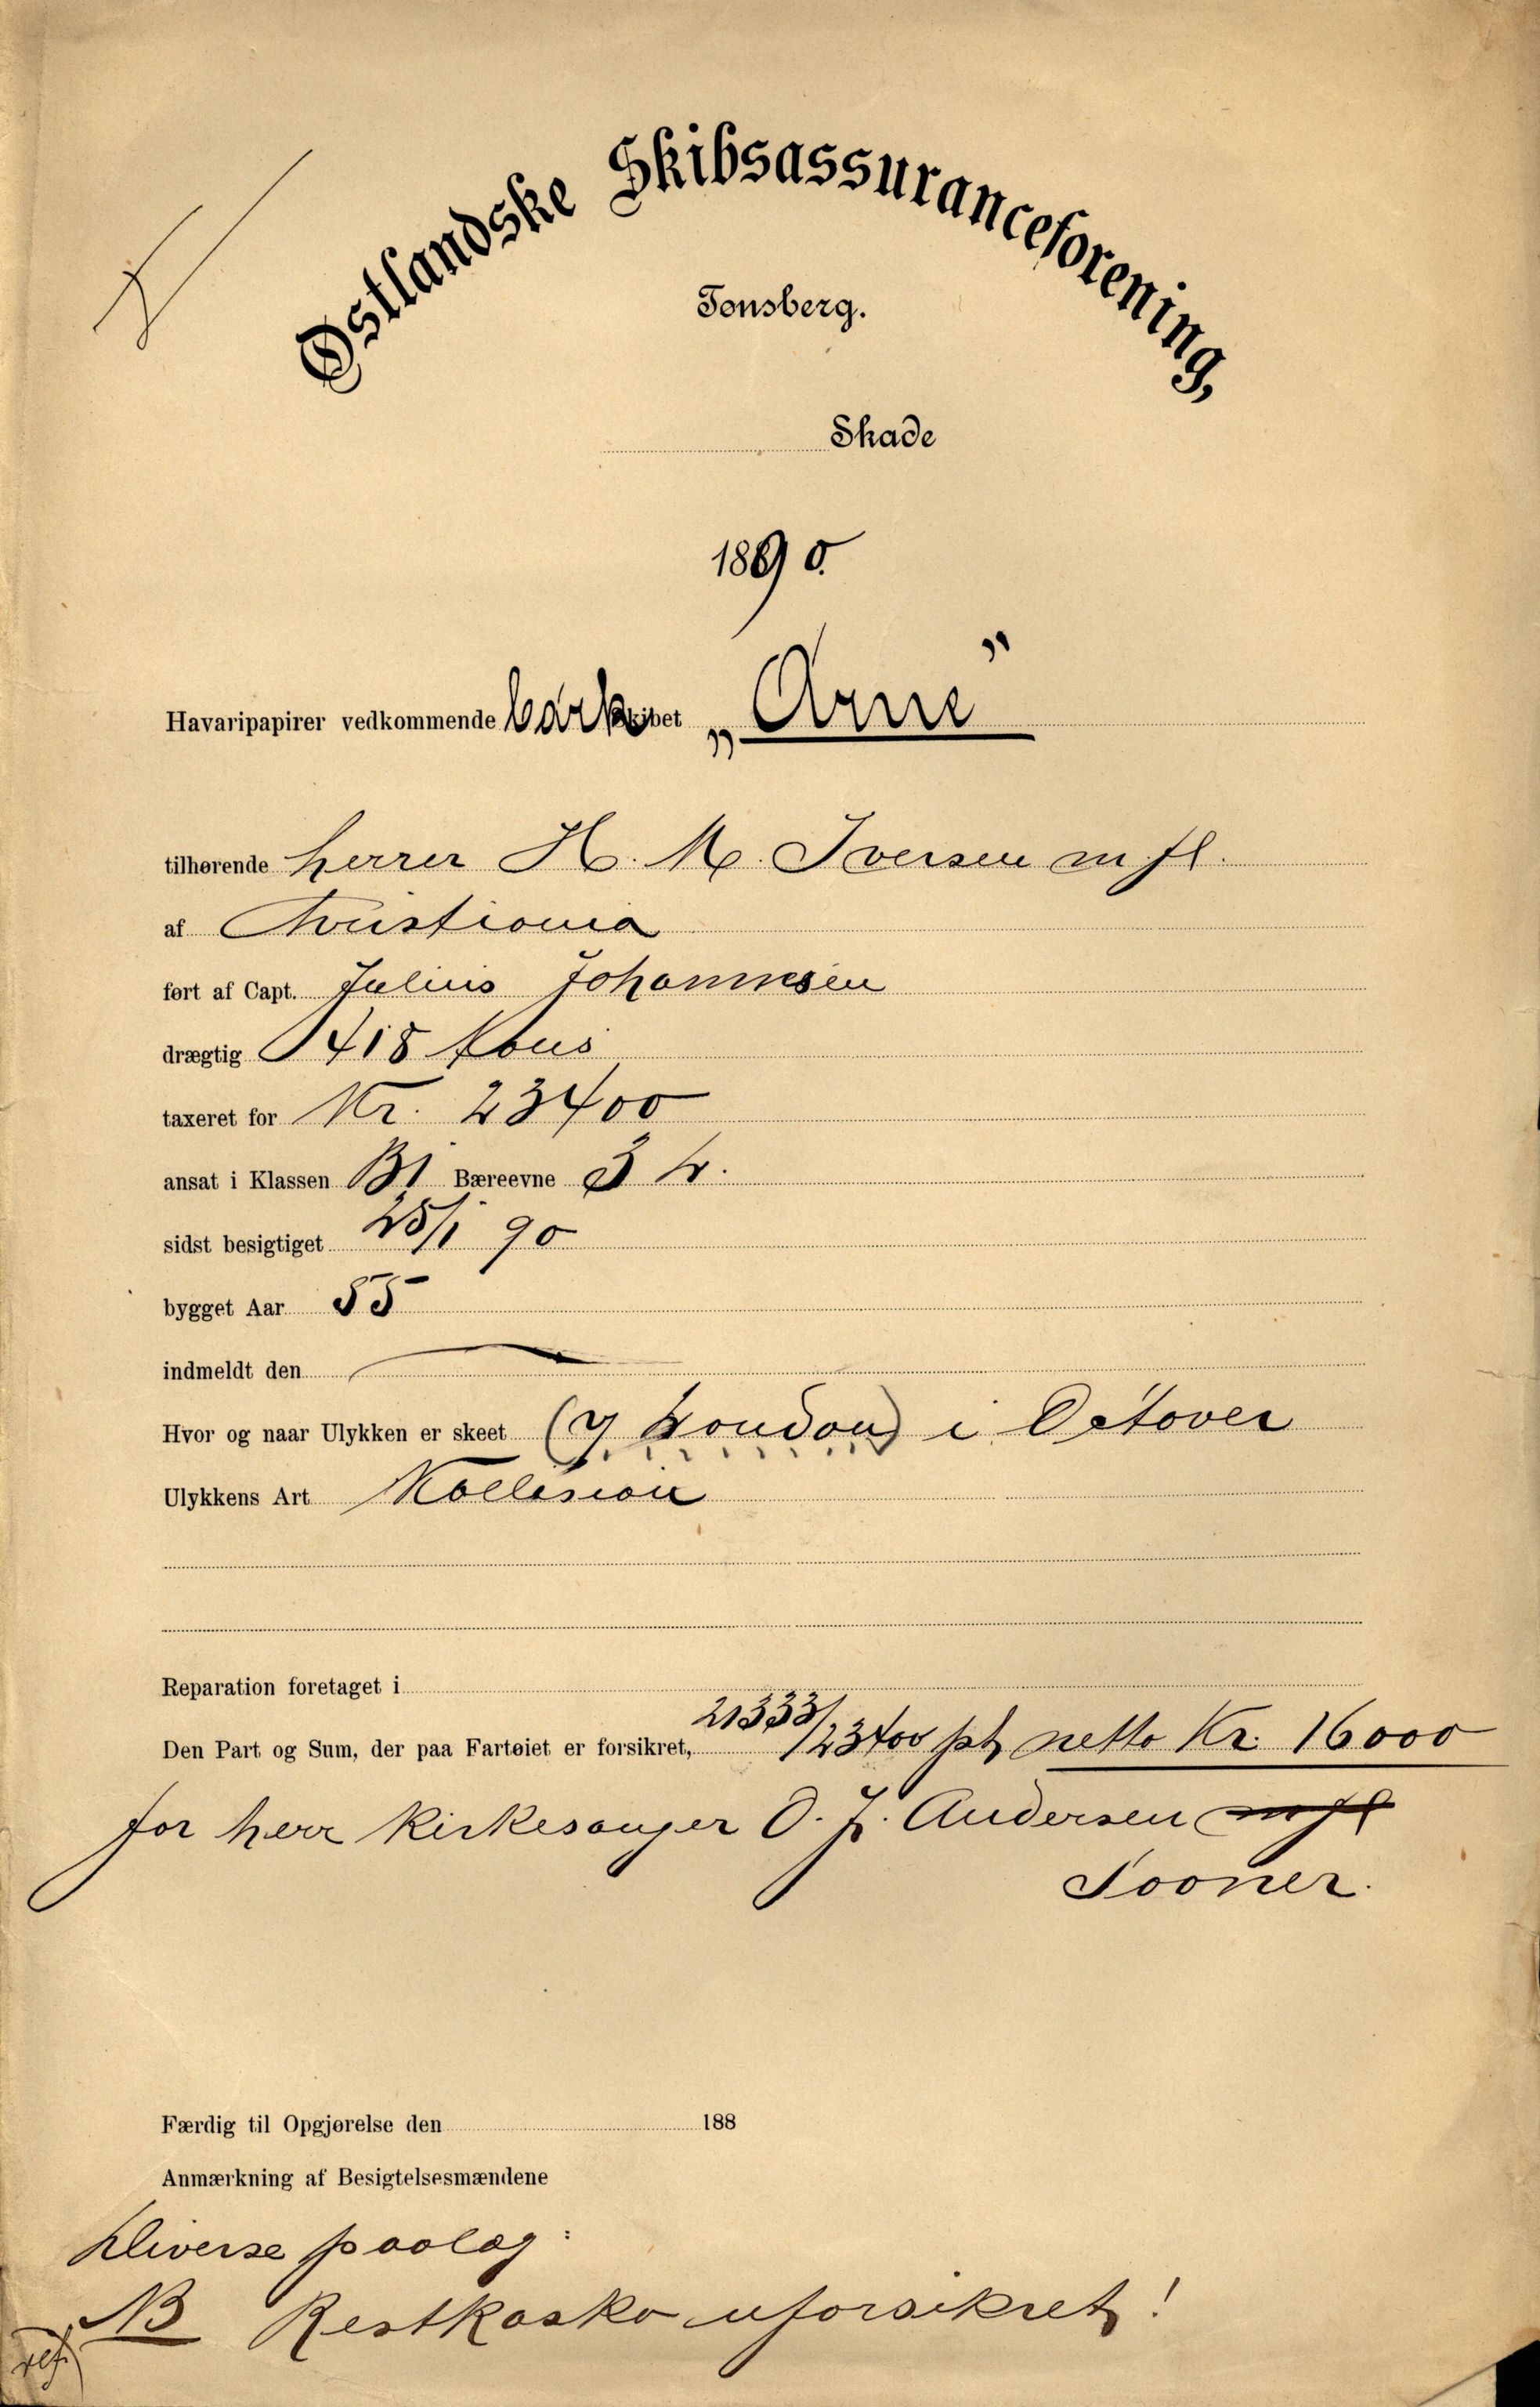 Østlandske Skibsassuranceforening,
Tønsberg.
Skade
1890.
Havaripapirer vedkommende bark skibet „Arne"
tilhørende herrer H. M. Iversen m fl.
af Christiania
ført af Capt. Julius Johannesen
drægtig 418 tons
taxeret for Kr. 23400
ansat i Klassen B1 Bæreevne 3
sidst besigtiget 25/1 90
bygget Aar 55
indmeldt den
Hvor og naar Ulykken er skeet (London) i October
Ulykkens Art Kollision
Reparation foretaget i
Den Part og Sum, der paa Fartøiet er forsikret, 21333/23400 pt netto Kr. 16000
for herr Kirkesanger O. Andersen m fl
Sooner.
Færdig til Opgjørelse den 188
Anmærkning af Besigtelsesmændene
Diverse paalæg:
NB Restkasko uforsikret!